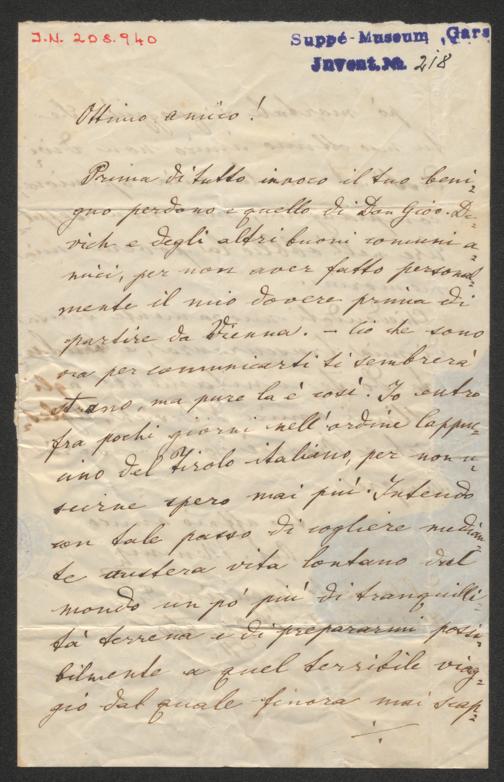 J.N. 208.940
Suppé-Museum, Gars
Jnvent.№ 218
Ottimo amico!
Prima di tutto invoco il tuo beni=
gno perdono e quello di Don Giov. De=
vich e degli altri buoni comuni a=
mici, per non aver fatto personal=
mente il mio dovere prima di
partire da Vienna. – Ciò che sono
ora per comunicarti ti sembrerà
strano, ma pure la è così. Io entro
fra pochi giorni nell'ordine Cappuc=
cino del Tirolo italiano, per non u=
scirne spero mai più. Intendo
con tale passo di cogliere median=
te austera vita lontano dal
mondo un pò più di tranquilli=
tà terrena e di prepararmi possi=
bilmente a quel terribile viag=
gio dal quale finora mai scap=